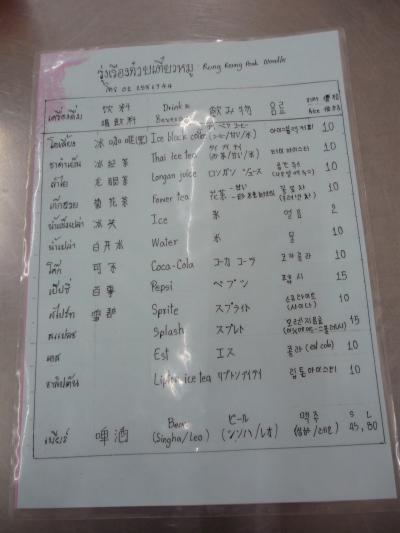 รุ่งเรืองก๋วยเตี๋ยวหมู : Rung Reung Pork Noodle
โทร 02 2586744
เครื่องดื่ม 飲料 Drink 飲み物 음료 ราคา 價格
Beverage Price 価格
โอเลี้ยง 冰咖啡(黑) Ice black coffee 아이스블랙커피 10
ชาดำเย็น 冰紅茶 Thai ice tea タイアイティ 타이 아이스티 10
ลำไย 龙眼茶 Longan juice ロンガン ジュース 10
เก๊กฮวย 菊花茶 Flower tea 花茶 꽃잎차 10
น้ำแข็งเปล่า 冰 Ice 氷 얼음 2
น้ำเปล่า 白开水 Water 水 물 10
โค้ก 可乐 Coca-Cola コーカ コーラ 코카콜라 10
เป๊ปซี่ 百事 Pepsi ペプシ 펩시 15
สไปร์ท 雪碧 Sprite スプライト 스프라이트 (사이다) 10
สแปลช Splash スプレト 15
เอส Est エス 콜라 (est cola) 10
ชาลิปตัน Lipton ice tea リプトンアイティ 립톤아이스티 10
เบียร์ 啤酒 Beer ビール 맥주 S L
(Singha/Leo) (シンハ/レオ) 45, 80